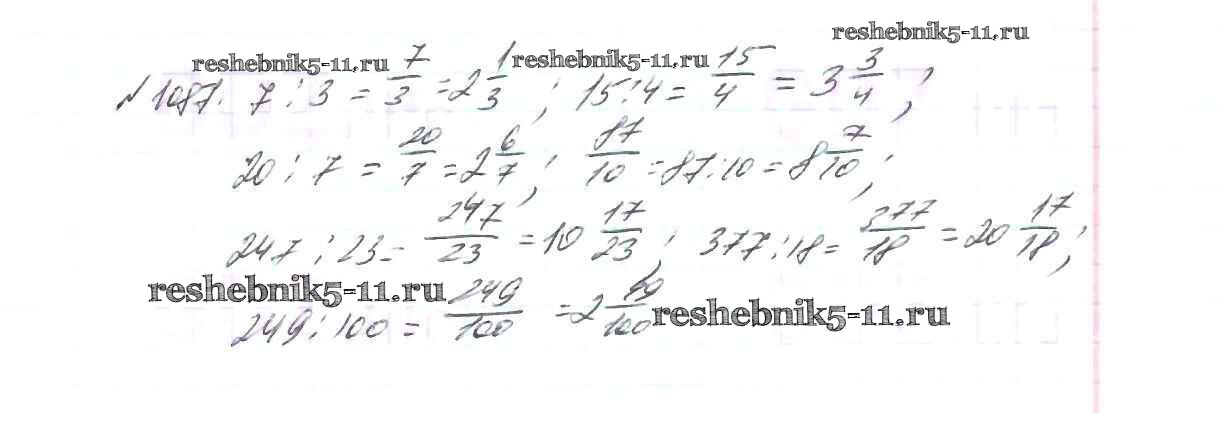 reshebnik5-11.ru
reshebnik5-11.ru reshebnik5-11.ru
№1087. 7 : 3 = 7/3 = 2 1/3 ; 15 : 4 = 15/4 = 3 3/4 ;
20 : 7 = 20/7 = 2 6/7 ; 87/10 = 87 : 10 = 8 7/10 ;
247 : 23 = 247/23 = 10 17/23 ; 377 : 18 = 377/18 = 20 17/18 ;
reshebnik5-11.ru
249 : 100 = 249/100 = 2 49/100
reshebnik5-11.ru